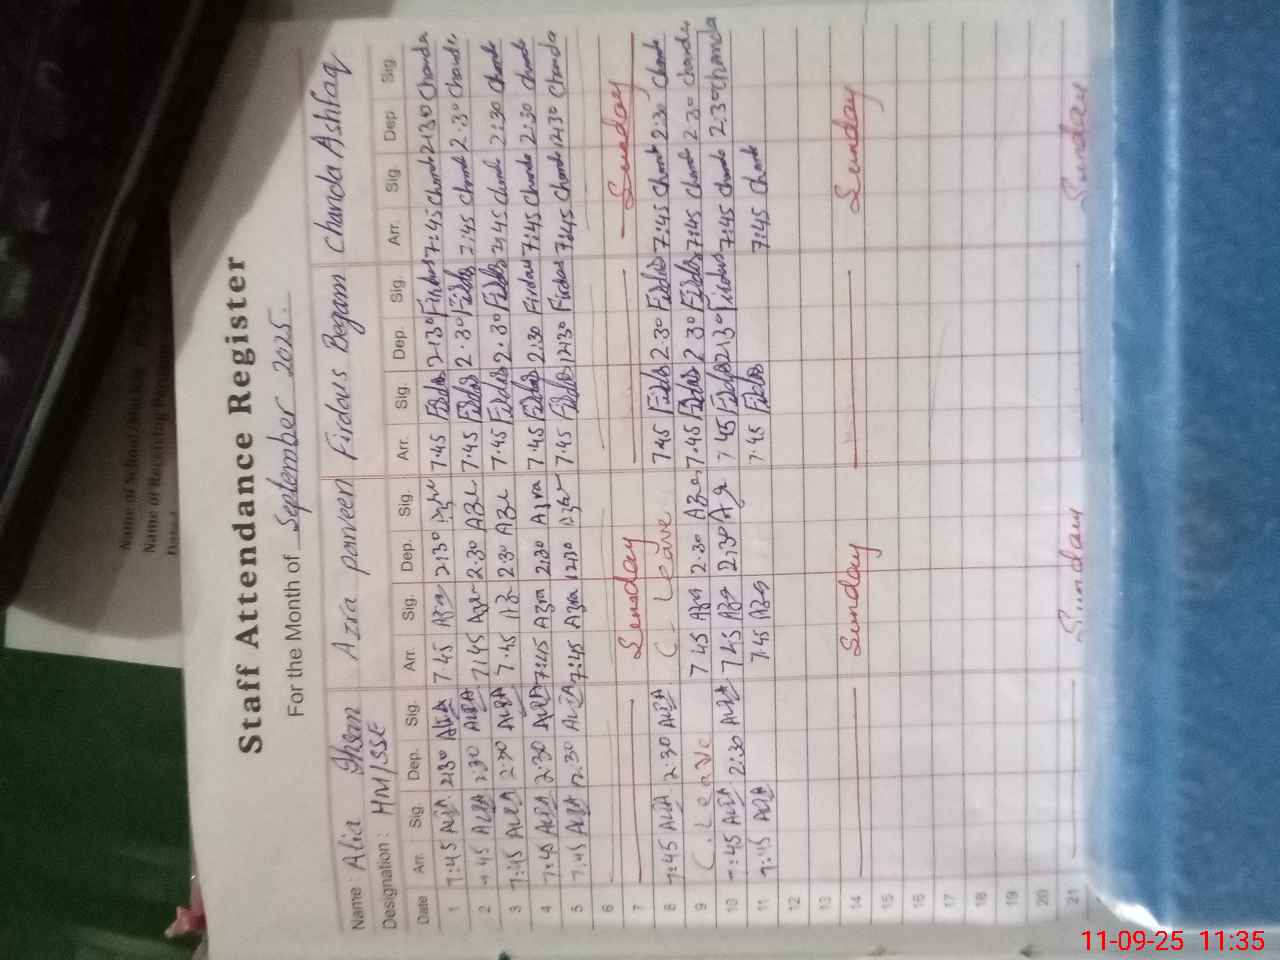 Staff Attendance Register
For the Month of September 2025.
Name : Alia Azra parveen Firdaus Begam Chanda Ashfaq
Designation : HM/SSE
Date Arr. Sig. Dep. Sig. Arr. Sig. Dep. Sig. Arr. Sig. Dep. Sig. Arr. Sig Dep Sig.
1 7:45 Alia 2:30 Alia 7.45 Azra 2:30 7.45 Firdos 2:30 Firdaus 7:45 Chanda 2:30 Chanda
2 7:45 Alia 2:30 Alia 7:45 Azra 2.30 Azra 7.45 Firdos 2.30 Firdos 7:45 Chanda 2.30 Chanda
3 7:45 Alia 2:30 Alia 7.45 Azra 2:30 Azra 7.45 Firdos 2.30 Firdos 7:45 Chanda 2:30 Chanda
4 7:45 Alia 2:30 Alia 7:45 Azra 2:30 Azra 7.45 Firdos 2:30 Firdaus 7:45 Chanda 2:30 Chanda
5 7:45 Alia 12:30 Alia 7:45 Azra 12:30 7.45 Firdos 12:30 Firdaus 7:45 Chanda 12:30 Chanda
6
7 Sunday Sunday
8 7:45 Alia 2:30 Alia C. Leave 7.45 Firdos 2.30 Firdos 7:45 Chanda 2:30 Chanda
9 C. Leave 7.45 Azra 2.30 Azra 7.45 Firdos 2.30 Firdos 7:45 Chanda 2.30 Chanda
10 7:45 Alia 2:30 Alia 7.45 Azra 2:30 Azra 7.45 Firdos 2:30 Firdaus 7:45 Chanda 2:30 Chanda
11 7:45 Alia 7.45 Azra 7.45 Firdos 7:45 Chanda
12
13
14 Sunday Sunday
15
16
17
18
19
20
21 Sunday Sunday
Name of School/
Name of Receiving
11-09-25 11:35